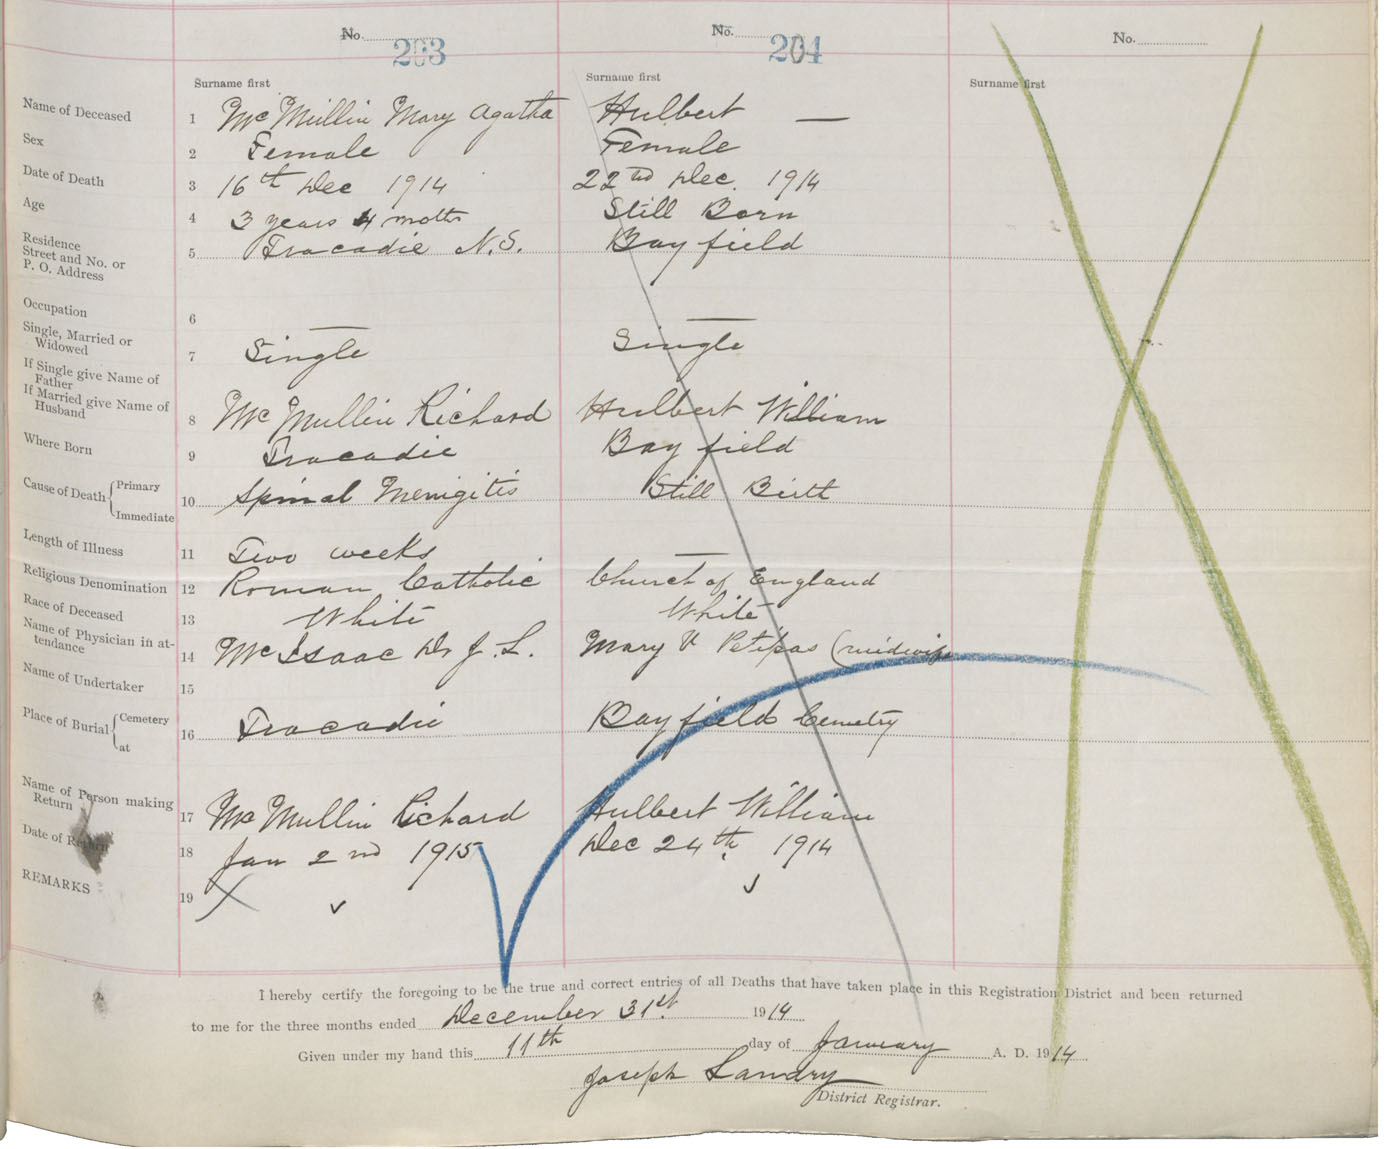 No. 203 No. 204 No.
Surname first Surname first Surname first
Name of Deceased 1 McMullin Mary Agatha Hulbert —
Sex 2 Female Female
Date of Death 3 16th Dec 1914 22nd Dec. 1914
Age 4 3 years 4 moths Still Born
Residence
Street and No. or
P. O. Address 5 Tracadie N.S. Bayfield
Occupation 6 — —
Single, Married or
Widowed 7 Single Single
If Single give Name of
Father
If Married give Name of
Husband 8 McMullin Richard Hulbert William
Where Born 9 Tracadie Bayfield
Cause of Death { Primary
Immediate 10 Spinal Menigitis Still Birth
Length of Illness 11 Two weeks —
Religious Denomination 12 Roman Catholic Church of England
Race of Deceased 13 White White
Name of Physician in at-
tendance 14 McIsaac Dr J. L. Mary Petipas (midwife
Name of Undertaker 15
Place of Burial { Cemetery
at 16 Tracadie Bayfield Cemetry
Name of Person making
Return 17 McMullin Richard Hulbert William
Date of Return 18 Jan 2nd 1915 Dec 24th, 1914
REMARKS 19
I hereby certify the foregoing to be the true and correct entries of all Deaths that have taken place in this Registration District and been returned
to me for the three months ended December 31st 1914
Given under my hand this 11th day of January A. D. 1914
Joseph Landry
District Registrar.